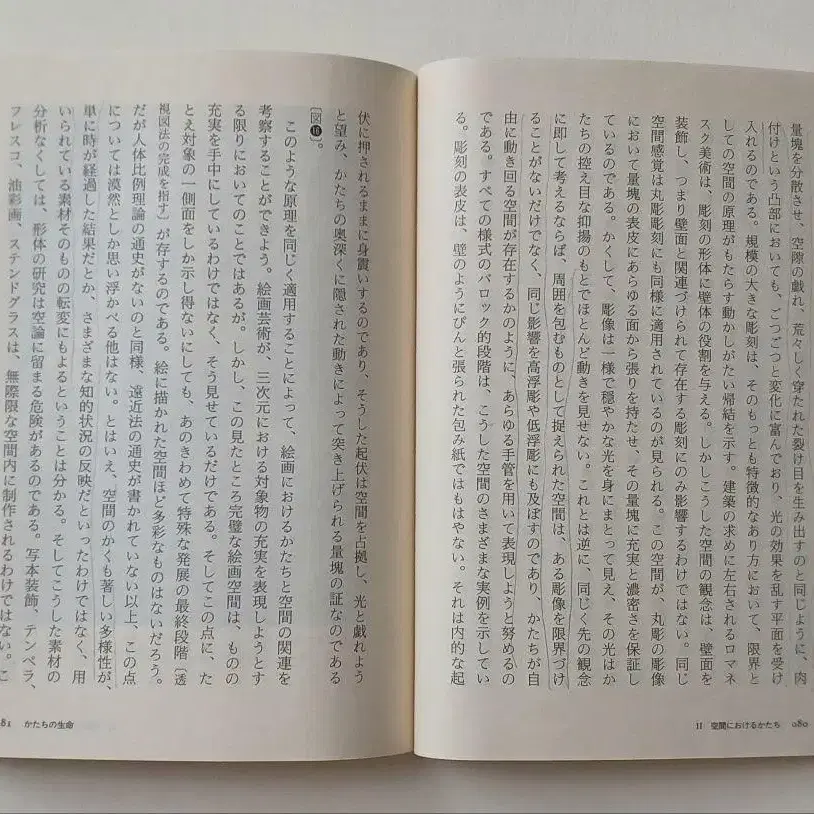 量塊を分散させ、空隙の戯れ、荒々しく穿たれた裂け目を生み出すのと同じように、肉
付けという凸部においても、ごつごつと変化に富んでおり、光の効果を乱す平面を受け
入れるのである。規模の大きな彫刻は、そのもっとも特徴的なあり方において、限界と
しての空間の原理がもたらす動かしがたい帰結を示す。建築の求めに左右されるロマネ
スク美術は、彫刻の形体に壁体の役割を与える。しかしこうした空間の観念は、壁面を
装飾し、つまり壁面と関連づけられて存在する彫刻にのみ影響するわけではない。同じ
空間感覚は丸彫彫刻にも同様に適用されているのが見られる。この空間が、丸彫の彫像
において量塊の表皮にあらゆる面から張りを持たせ、その量塊に充実と濃密さを保証し
ているのである。かくして、彫像は一様で穏やかな光を身にまとって見え、その光はか
たちの控え目な抑揚のもとでほとんど動きを見せない。これとは逆に、同じく先の観念
に即して考えるならば、周囲を包むものとして捉えられた空間は、ある彫像を限界づけ
ることがないだけでなく、同じ影響を高浮彫や低浮彫にも及ぼすのであり、かたちが自
由に動き回る空間が存在するかのように、あらゆる手管を用いて表現しようと努めるの
である。すべての様式のバロック的段階は、こうした空間のさまざまな実例を示してい
る。彫刻の表皮は、壁のようにぴんと張られた包み紙ではもはやない。それは内的な起
II 空間におけるかたち 080
伏に押されるままに身震いするのであり、そうした起伏は空間を占拠し、光と戯れよう
と望み、かたちの奥深くに隠された動きによって突き上げられる量塊の証なのである
〔図16〕。
このような原理を同じく適用することによって、絵画におけるかたちと空間の関連を
考察することができよう。絵画芸術が、三次元における対象物の充実を表現しようとす
る限りにおいてのことではあるが。しかし、この見たところ完璧な絵画空間は、ものの
充実を手中にしているわけではなく、そう見せているだけである。そしてこの点に、た
とえ対象の一側面をしか示し得ないにしても、あのきわめて特殊な発展の最終段階〔透
視図法の完成を指す〕が存するのである。絵に描かれた空間ほど多彩なものはないだろう。
だが人体比例理論の通史がないのと同様、遠近法の通史が書かれていない以上、この点
については漠然としか思い浮かべる他はない。とはいえ、空間のかくも著しい多様性が、
単に時が経過した結果だとか、さまざまな知的状況の反映だといったわけではなく、用
いられている素材そのものの転変にもよるということは分かる。そしてこうした素材の
分析なくしては、形体の研究は空論に留まる危険があるのである。写本装飾、テンペラ、
フレスコ、油彩画、ステンドグラスは、無際限な空間内に制作されるわけではない。こ
81 かたちの生命